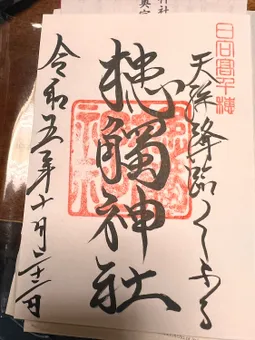 日向高千穂
天孫降臨くしふる
槵觸神社
令和五年十月二十二日